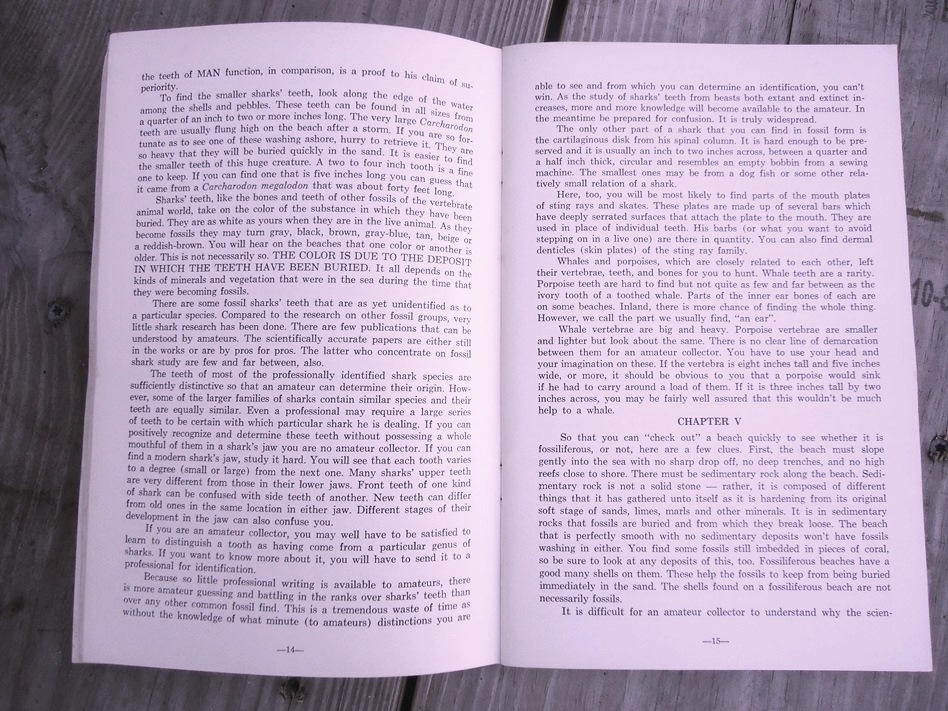 the teeth of MAN function, in comparison, is a proof to his claim of su-
periority.
To find the smaller sharks' teeth, look along the edge of the water
among the shells and pebbles. These teeth can be found in all sizes from
a quarter of an inch to two or more inches long. The very large Carcharodon
teeth are usually flung high on the beach after a storm. If you are so for-
tunate as to see one of these washing ashore, hurry to retrieve it. They are
so heavy that they will be buried quickly in the sand. It is easier to find
the smaller teeth of this huge creature. A two to four inch tooth is a fine
one to keep. If you can find one that is five inches long you can guess that
it came from a Carcharodon megalodon that was about forty feet long.
Sharks' teeth, like the bones and teeth of other fossils of the vertebrate
animal world, take on the color of the substance in which they have been
buried. They are as white as yours when they are in the live animal. As they
become fossils they may turn gray, black, brown, gray-blue, tan, beige or
a reddish-brown. You will hear on the beaches that one color or another is
older. This is not necessarily so. THE COLOR IS DUE TO THE DEPOSIT
IN WHICH THE TEETH HAVE BEEN BURIED. It all depends on the
kinds of minerals and vegetation that were in the sea during the time that
they were becoming fossils.
There are some fossil sharks' teeth that are as yet unidentified as to
a particular species. Compared to the research on other fossil groups, very
little shark research has been done. There are few publications that can be
understood by amateurs. The scientifically accurate papers are either still
in the works or are by pros for pros. The latter who concentrate on fossil
shark study are few and far between, also.
The teeth of most of the professionally identified shark species are
sufficiently distinctive so that an amateur can determine their origin. How-
ever, some of the larger families of sharks contain similar species and their
teeth are equally similar. Even a professional may require a large series
of teeth to be certain with which particular shark he is dealing. If you can
positively recognize and determine these teeth without possessing a whole
mouthful of them in a shark's jaw you are no amateur collector. If you can
find a modern shark's jaw, study it hard. You will see that each tooth varies
to a degree (small or large) from the next one. Many sharks' upper teeth
are very different from those in their lower jaws. Front teeth of one kind
of shark can be confused with side teeth of another. New teeth can differ
from old ones in the same location in either jaw. Different stages of their
development in the jaw can also confuse you.
If you are an amateur collector, you may well have to be satisfied to
learn to distinguish a tooth as having come from a particular genus of
sharks. If you want to know more about it, you will have to send it to a
professional for identification.
Because so little professional writing is available to amateurs, there
is more amateur guessing and battling in the ranks over sharks' teeth than
over any other common fossil find. This is a tremendous waste of time as
without the knowledge of what minute (to amateurs) distinctions you are
—14—
able to see and from which you can determine an identification, you can't
win. As the study of sharks' teeth from beasts both extant and extinct in-
creases, more and more knowledge will become available to the amateur. In
the meantime be prepared for confusion. It is truly widespread.
The only other part of a shark that you can find in fossil form is
the cartilaginous disk from his spinal column. It is hard enough to be pre-
served and it is usually an inch to two inches across, between a quarter and
a half inch thick, circular and resembles an empty bobbin from a sewing
machine. The smallest ones may be from a dog fish or some other rela-
tively small relation of a shark.
Here, too, you will be most likely to find parts of the mouth plates
of sting rays and skates. These plates are made up of several bars which
have deeply serrated surfaces that attach the plate to the mouth. They are
used in place of individual teeth. His barbs (or what you want to avoid
stepping on in a live one) are there in quantity. You can also find dermal
denticles (skin plates) of the sting ray family.
Whales and porpoises, which are closely related to each other, left
their vertebrae, teeth, and bones for you to hunt. Whale teeth are a rarity.
Porpoise teeth are hard to find but not quite as few and far between as the
ivory tooth of a toothed whale. Parts of the inner ear bones of each are
on some beaches. Inland, there is more chance of finding the whole thing.
However, we call the part we usually find, "an ear".
Whale vertebrae are big and heavy. Porpoise vertebrae are smaller
and lighter but look about the same. There is no clear line of demarcation
between them for an amateur collector. You have to use your head and
your imagination on these. If the vertebra is eight inches tall and five inches
wide, or more, it should be obvious to you that a porpoise would sink
if he had to carry around a load of them. If it is three inches tall by two
inches across, you may be fairly well assured that this wouldn't be much
help to a whale.
CHAPTER V
So that you can "check out" a beach quickly to see whether it is
fossiliferous, or not, here are a few clues. First, the beach must slope
gently into the sea with no sharp drop off, no deep trenches, and no high
reefs close to shore. There must be sedimentary rock along the beach. Sedi-
mentary rock is not a solid stone — rather, it is composed of different
things that it has gathered unto itself as it is hardening from its original
soft stage of sands, limes, marls and other minerals. It is in sedimentary
rocks that fossils are buried and from which they break loose. The beach
that is perfectly smooth with no sedimentary deposits won't have fossils
washing in either. You find some fossils still imbedded in pieces of coral,
so be sure to look at any deposits of this, too. Fossiliferous beaches have a
good many shells on them. These help the fossils to keep from being buried
immediately in the sand. The shells found on a fossiliferous beach are not
necessarily fossils.
It is difficult for an amateur collector to understand why the scien-
—15—